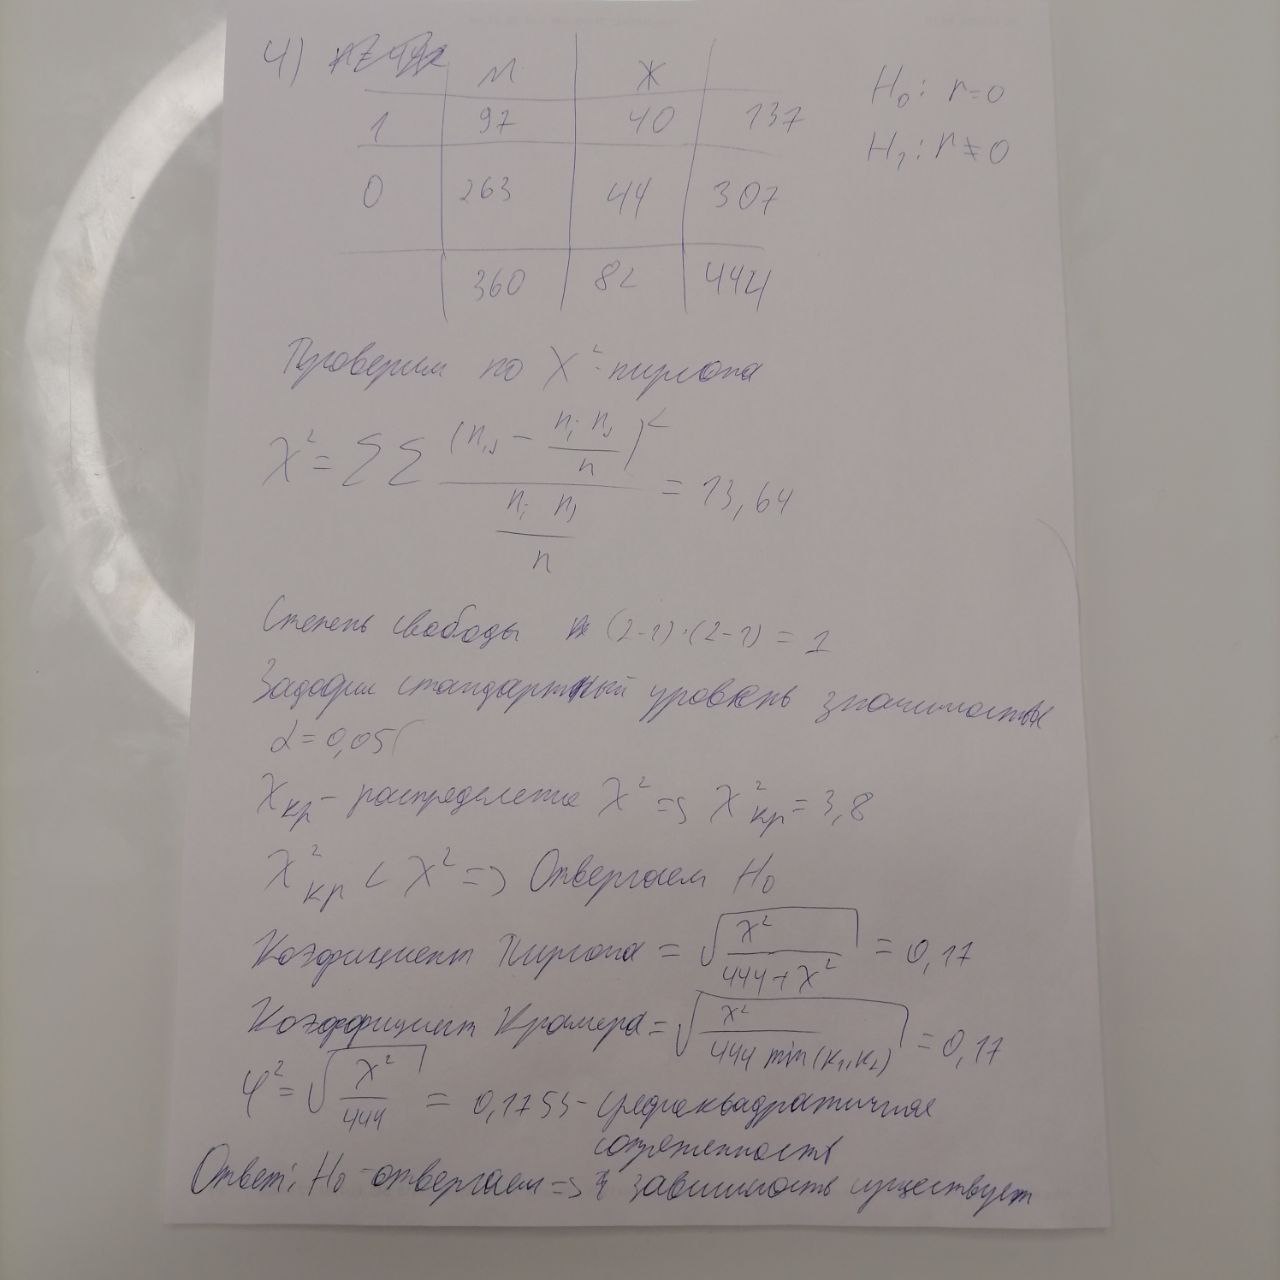 4)
М Ж
1 97 40 137
0 263 44 307
360 82 444
H₀: r=0
H₁: r≠0
Проверим по χ²-пирсона
χ² = ΣΣ (nᵢⱼ - nᵢ nⱼ / n)² / (nᵢ nⱼ / n) = 13,64
Степень свободы (2-1)·(2-1) = 1
Зададим стандартный уровень значимости
α=0,05
χкр - распределение χ² => χ²кр = 3,8
χ²кр < χ² => Отвергаем H₀
Коэфициент Пирсона = √(χ² / (444+χ²)) = 0,17
Коэффициент Крамера = √(χ² / (444 min(k₁,k₂))) = 0,17
φ² = √(χ² / 444) = 0,1753 - среднеквадратичная
сопряженность
Ответ: H₀ - отвергаем => зависимость существует